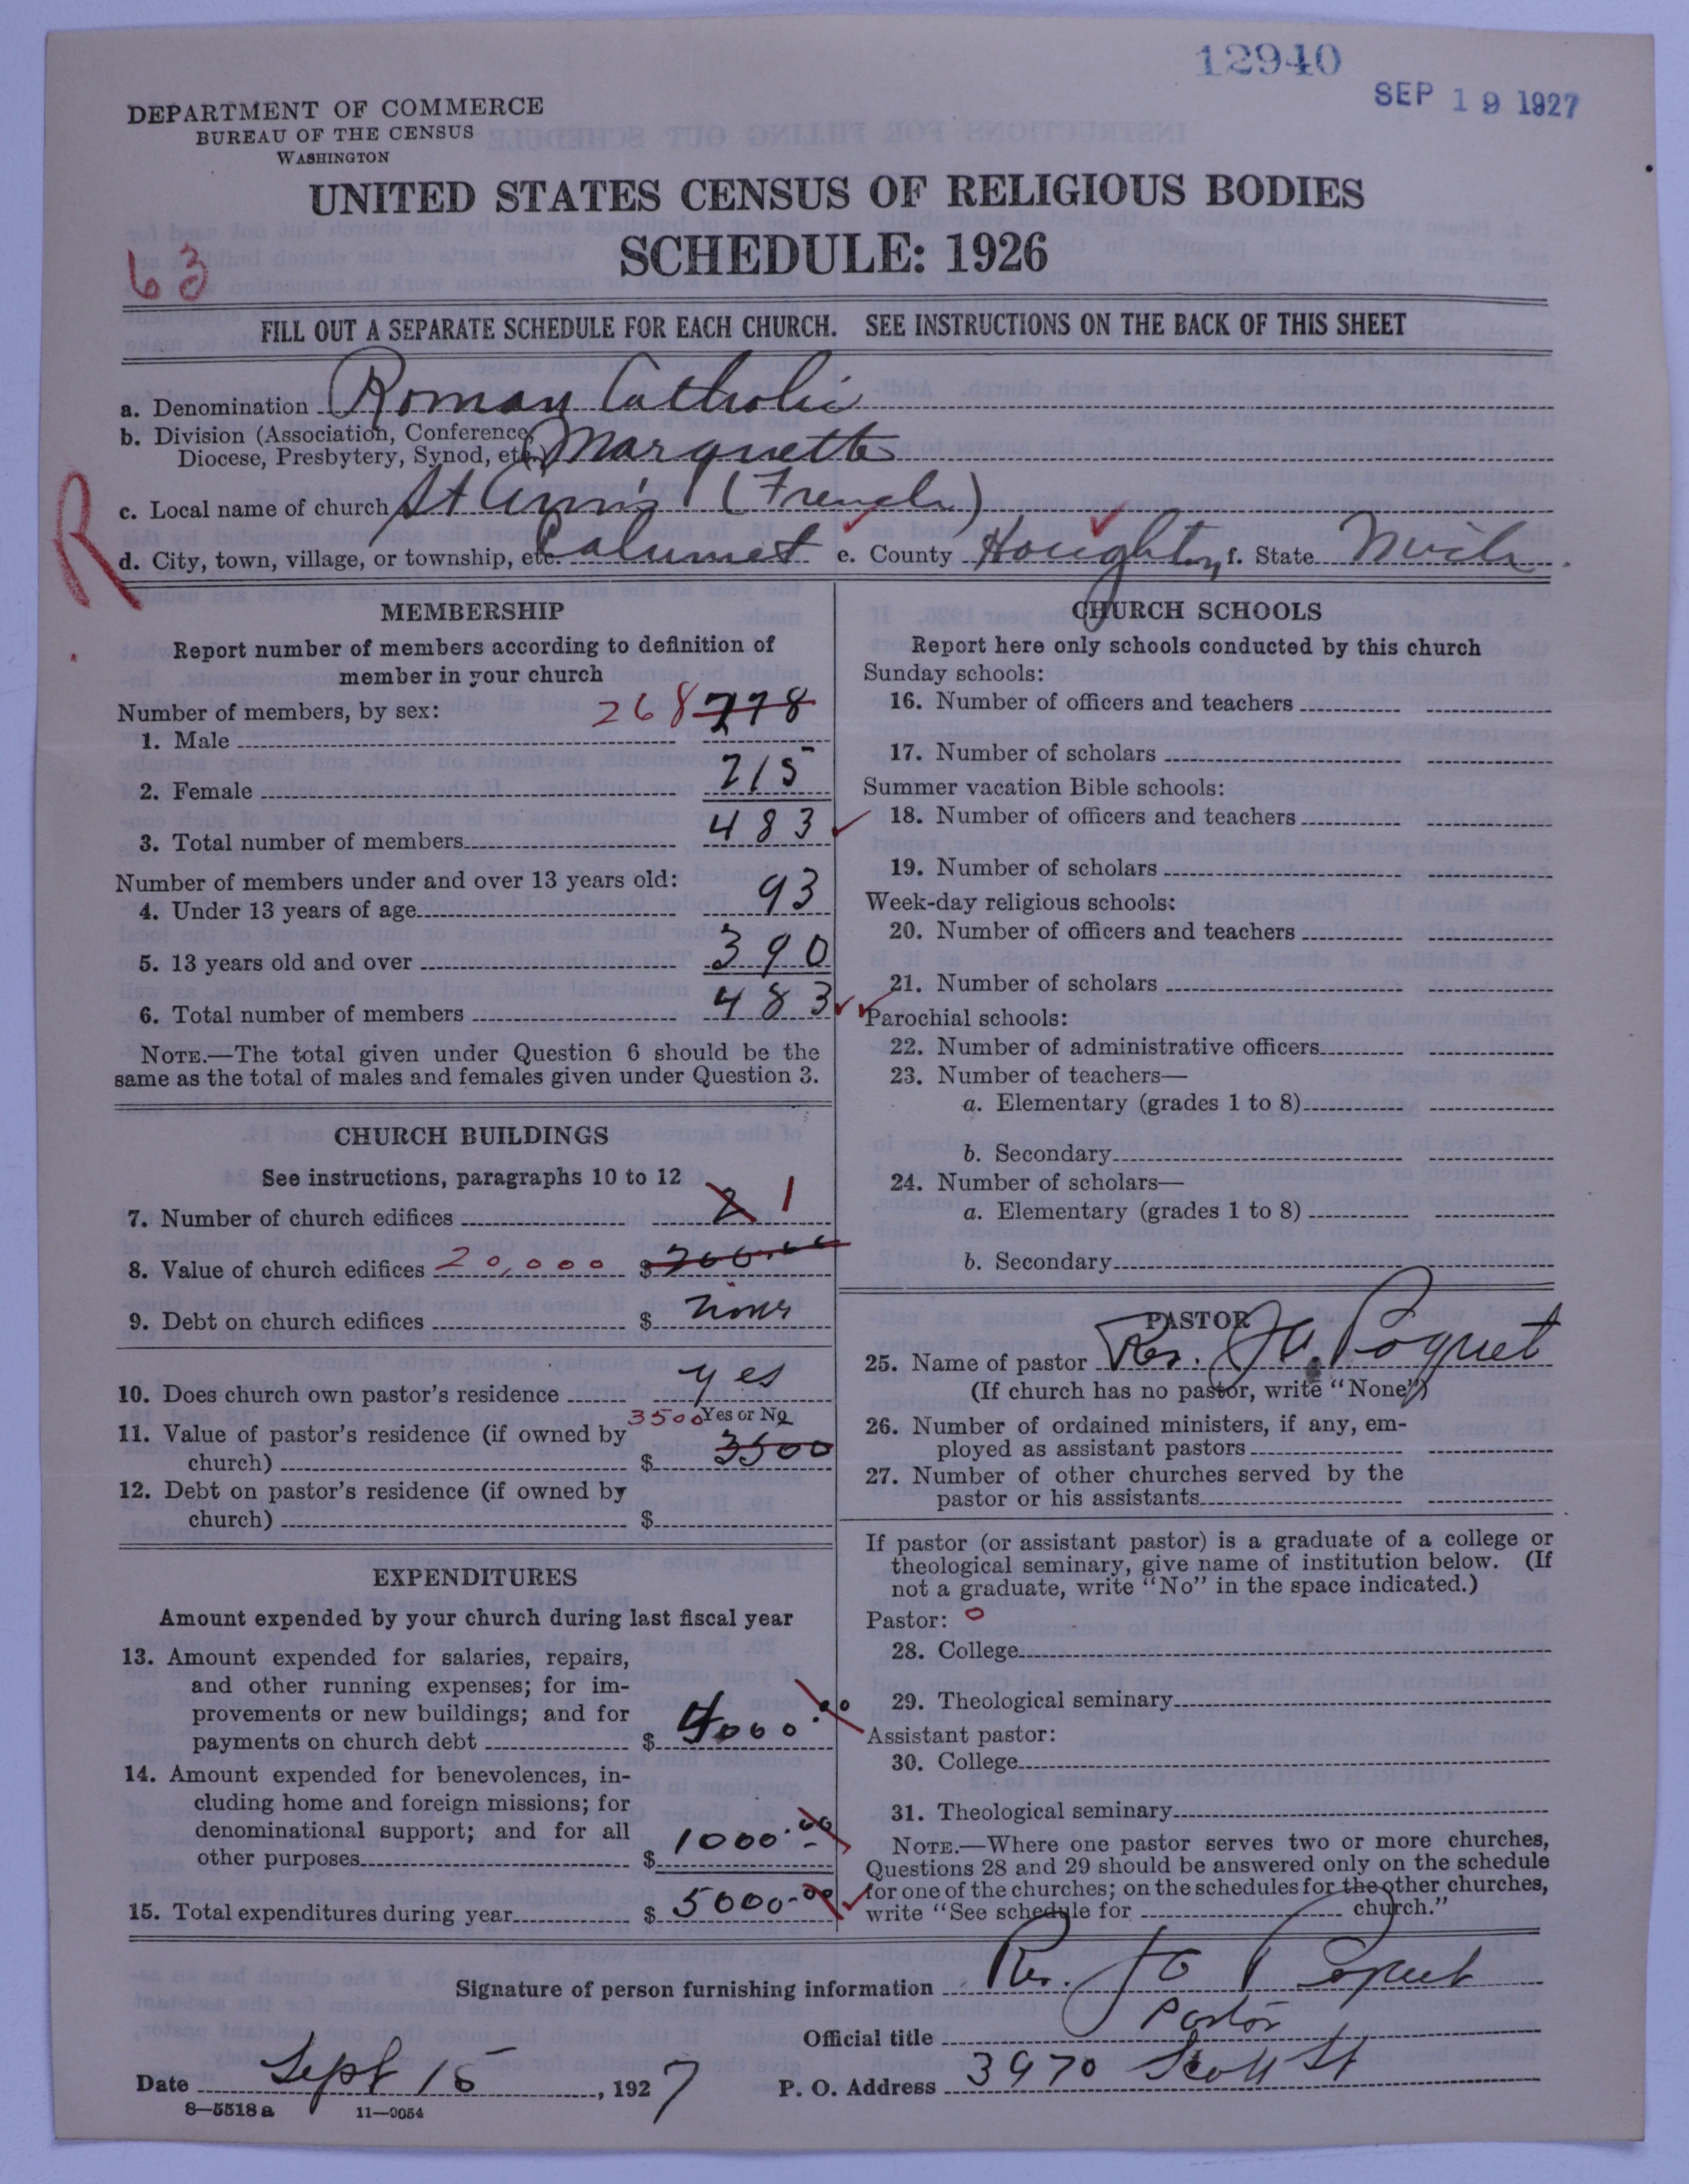 12940
SEP 19 1927
DEPARTMENT OF COMMERCE
BUREAU OF THE CENSUS
WASHINGTON
UNITED STATES CENSUS OF RELIGIOUS BODIES
SCHEDULE: 1926
63
FILL OUT A SEPARATE SCHEDULE FOR EACH CHURCH. SEE INSTRUCTIONS ON THE BACK OF THIS SHEET
a. Denomination Roman Catholic
b. Division (Association, Conference, Diocese, Presbytery, Synod, etc.) Marquette
R
c. Local name of church St Ann's (French)
d. City, town, village, or township, etc. Calumet e. County Houghton f. State Mich.
MEMBERSHIP
Report number of members according to definition of
member in your church
Number of members, by sex:
1. Male 268 778
2. Female 215
3. Total number of members 483
Number of members under and over 13 years old:
4. Under 13 years of age 93
5. 13 years old and over 390
6. Total number of members 483
NOTE.—The total given under Question 6 should be the
same as the total of males and females given under Question 3.
CHURCH BUILDINGS
See instructions, paragraphs 10 to 12
7. Number of church edifices 2 1
8. Value of church edifices 20,000 $
9. Debt on church edifices $ none
10. Does church own pastor's residence yes
Yes or No
11. Value of pastor's residence (if owned by 3500
church) $ 3500
12. Debt on pastor's residence (if owned by
church) $
EXPENDITURES
Amount expended by your church during last fiscal year
13. Amount expended for salaries, repairs,
and other running expenses; for im-
provements or new buildings; and for
payments on church debt $ 4000.00
14. Amount expended for benevolences, in-
cluding home and foreign missions; for
denominational support; and for all
other purposes $ 1000.00
15. Total expenditures during year $ 5000.00
CHURCH SCHOOLS
Report here only schools conducted by this church
Sunday schools:
16. Number of officers and teachers
17. Number of scholars
Summer vacation Bible schools:
18. Number of officers and teachers
19. Number of scholars
Week-day religious schools:
20. Number of officers and teachers
21. Number of scholars
Parochial schools:
22. Number of administrative officers
23. Number of teachers—
a. Elementary (grades 1 to 8)
b. Secondary
24. Number of scholars—
a. Elementary (grades 1 to 8)
b. Secondary
PASTOR
25. Name of pastor Rev. Poquet
(If church has no pastor, write "None")
26. Number of ordained ministers, if any, em-
ployed as assistant pastors
27. Number of other churches served by the
pastor or his assistants
If pastor (or assistant pastor) is a graduate of a college or
theological seminary, give name of institution below. (If
not a graduate, write "No" in the space indicated.)
Pastor: 0
28. College
29. Theological seminary
Assistant pastor:
30. College
31. Theological seminary
NOTE.—Where one pastor serves two or more churches,
Questions 28 and 29 should be answered only on the schedule
for one of the churches; on the schedules for the other churches,
write "See schedule for church."
Signature of person furnishing information Rev. Poquet
Official title Pastor
Date Sept 15, 1927 P. O. Address 3970 Scott St
8—5518 a 11—9054